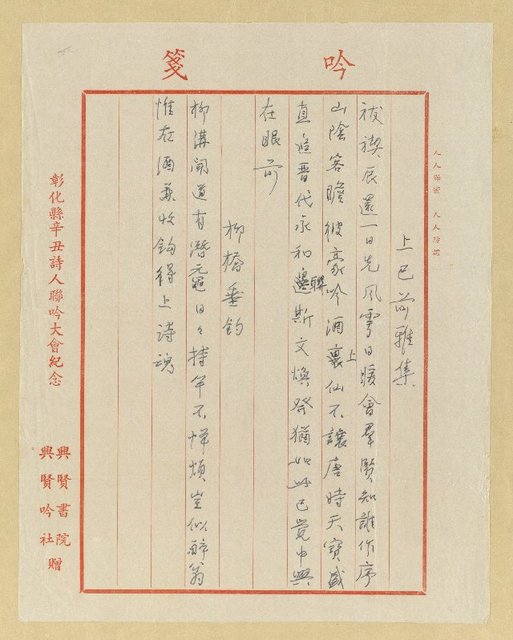 吟箋
人人保密 人人防諜
上巳前雅集
祓禊辰還一日先風雩日暖會羣賢知誰作序
山陰客瞻彼豪吟酒裏仙不讓唐時天寶盛
上
直追晉代永和邊斯文煥發猶如此已覺中興
聯
在眼前
柳橋垂釣
柳溝聞道有潛黿日々持竿不憚煩豈似醉翁
惟在酒兼收釣得上詩魂
彰化縣辛丑詩人聯吟大會紀念
興賢書院
興賢吟社贈